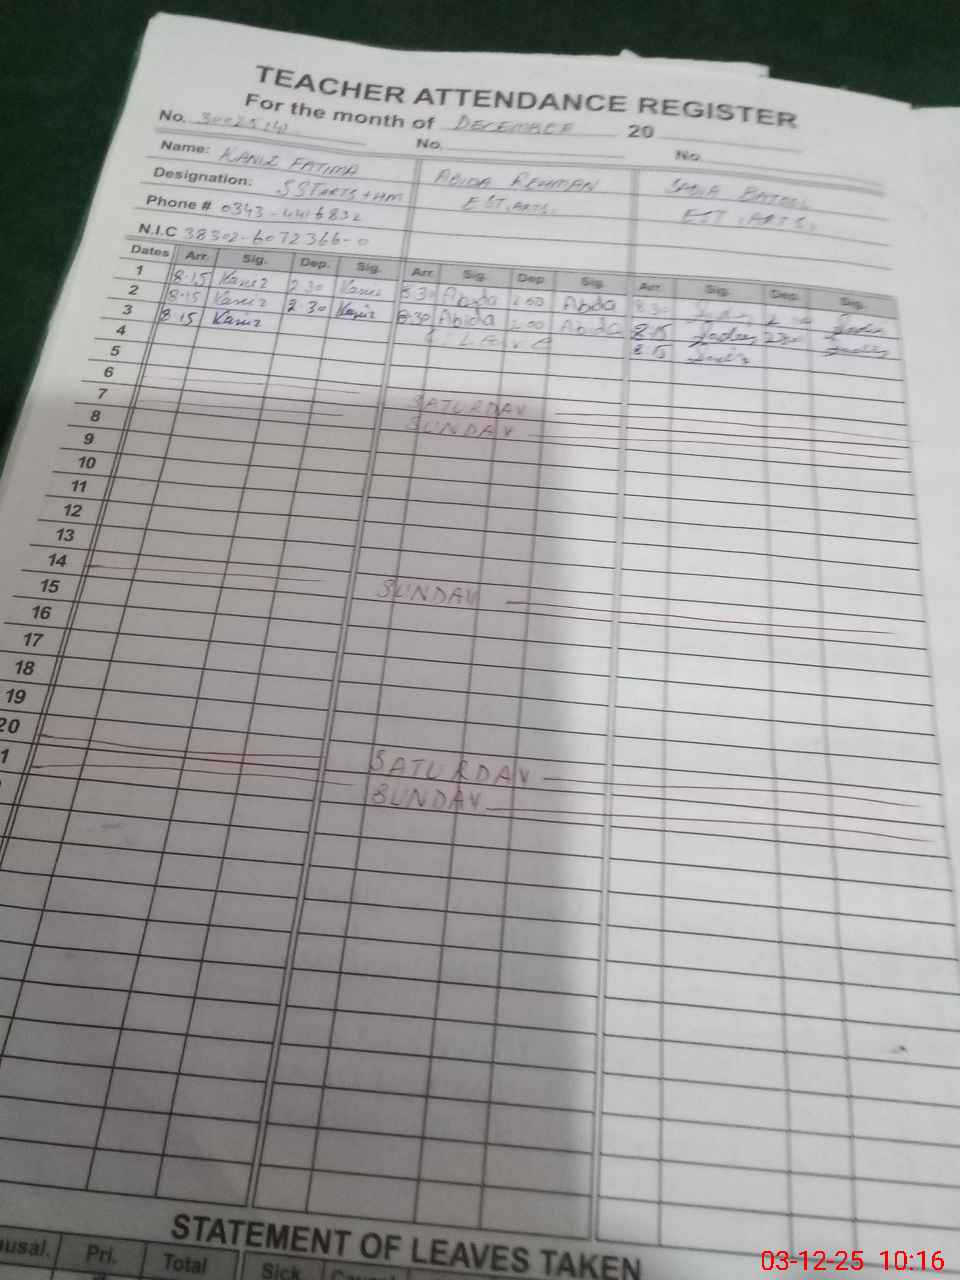 TEACHER ATTENDANCE REGISTER
For the month of DECEMBER 20
No. No. No.
Name: KANIZ FATIMA ABIDA REHMAN
Designation: SSTARTS+HM EST. ARTS. EST. ARTS.
Phone # 0343-4416832
N.I.C 38302-6072366-0
Dates Arr. Sig. Dep. Sig. Arr. Sig. Dep. Sig. Arr. Sig. Dep. Sig.
1 8.15 Kaniz 2.30 Kaniz 8.30 Abida 2.00 Abida 8.30
2 8.15 Kaniz 2.30 Kaniz 8.30 Abida 2.00 Abida 8.15
3 8.15 Kaniz 8.15
4
5
6 SATURDAY
7 SUNDAY
8
9
10
11
12
13
14 SUNDAY
15
16
17
18
19
20 SATURDAY
1 SUNDAY
STATEMENT OF LEAVES TAKEN
ausal. Pri. Total Sick Causal
03-12-25 10:16